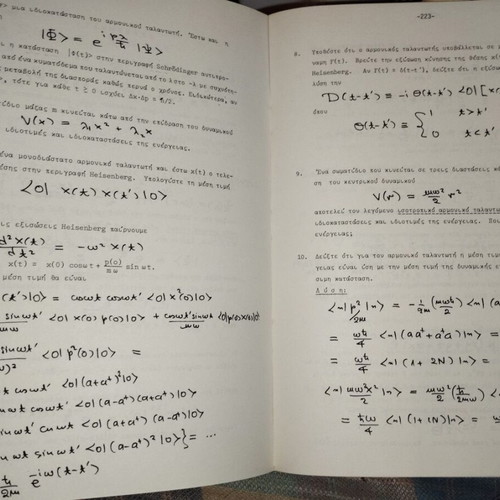 μια ιδιοκατάσταση του αρμονικού ταλαντωτή. Έστω και η
|Φ> = e^{ipλ/ħ} |Ψ>
η κατάσταση |Φ(t)> στην περιγραφή Schrödinger
από ένα κυματόδεμα που ταλαντώνεται
μεταβολή της διασποράς καθώς περνά ο χρόνος. Ειδικώτερα, αν
τότε για κάθε t ≥ 0 ισχύει Δx·Δp = ħ/2.
μάζας m κινείται κάτω από την επίδραση του δυναμικού
V(x) = λ₁x² + λ₂x
ιδιοτιμές και ιδιοκαταστάσεις της ενέργειας.
ένα μονοδιάστατο αρμονικό ταλαντωτή και έστω x(t) ο
θέσης στην περιγραφή Heisenberg. Υπολογίστε τη μέση τιμή
<0| x(t) x(t') |0>
εξισώσεις Heisenberg παίρνουμε
d²x(t)/dt² = -ω² x(t)
x(t) = x(0) cosωt + p(0)/mω sin ωt.
μέση τιμή θα είναι
(t')|0> = cosωt cosωt' <0|x²(0)|0>
sinωt' <0|x(0) p(0)|0> + cosωt' sinωt/mω <0|p(0)x(0)|0>
sinωt' <0|p²(0)|0> =
cosωt' <0|(a+a⁺)²|0>
cosωt' <0|(a-a⁺)(a+a⁺)|0>
sinωt' cosωt <0|(a+a⁺)(a-a⁺)|0>
sinωt' <0|(a-a⁺)²|0>} = ...
ħ/2mω e^{-iω(t-t')}
-223-
8. Υποθέστε ότι ο αρμονικός ταλαντωτής υποβάλλεται σε
F(t). Βρείτε την εξίσωση κίνησης της θέσης
Heisenberg. Αν F(t) = δ(t-t'), δείξτε ότι η
λύση την
D(t-t') = -i Θ(t-t') <0|[x
όπου
Θ(t-t') ≡ { 1 t>t'
0 t<t'
9. Ένα σωματίδιο κινείται σε τρεις διαστάσεις
ση του κεντρικού δυναμικού
V(r) = mω²/2 r²
αποτελεί τον λεγόμενο ισοτροπικό αρμονικό
ιδιοκαταστάσεις και ιδιοτιμές της ενέργειας.
ενέργειας;
10. Δείξτε ότι για τον αρμονικό ταλαντωτή η μέση
γειας είναι ίση με την μέση τιμή της δυναμικής
σιμη κατάσταση.
Λύση:
<n| p²/2m |n> = -1/2m (mωħ/2) <n|(a
= ωħ/4 <n|(aa⁺+a⁺a)|n> =
= ωħ/4 <n|(1+2N)|n> =
<n| mω²x²/2 |n> = mω²/2 (ħ/2mω) <
= ħω/4 <n|(1+2N)|n> =